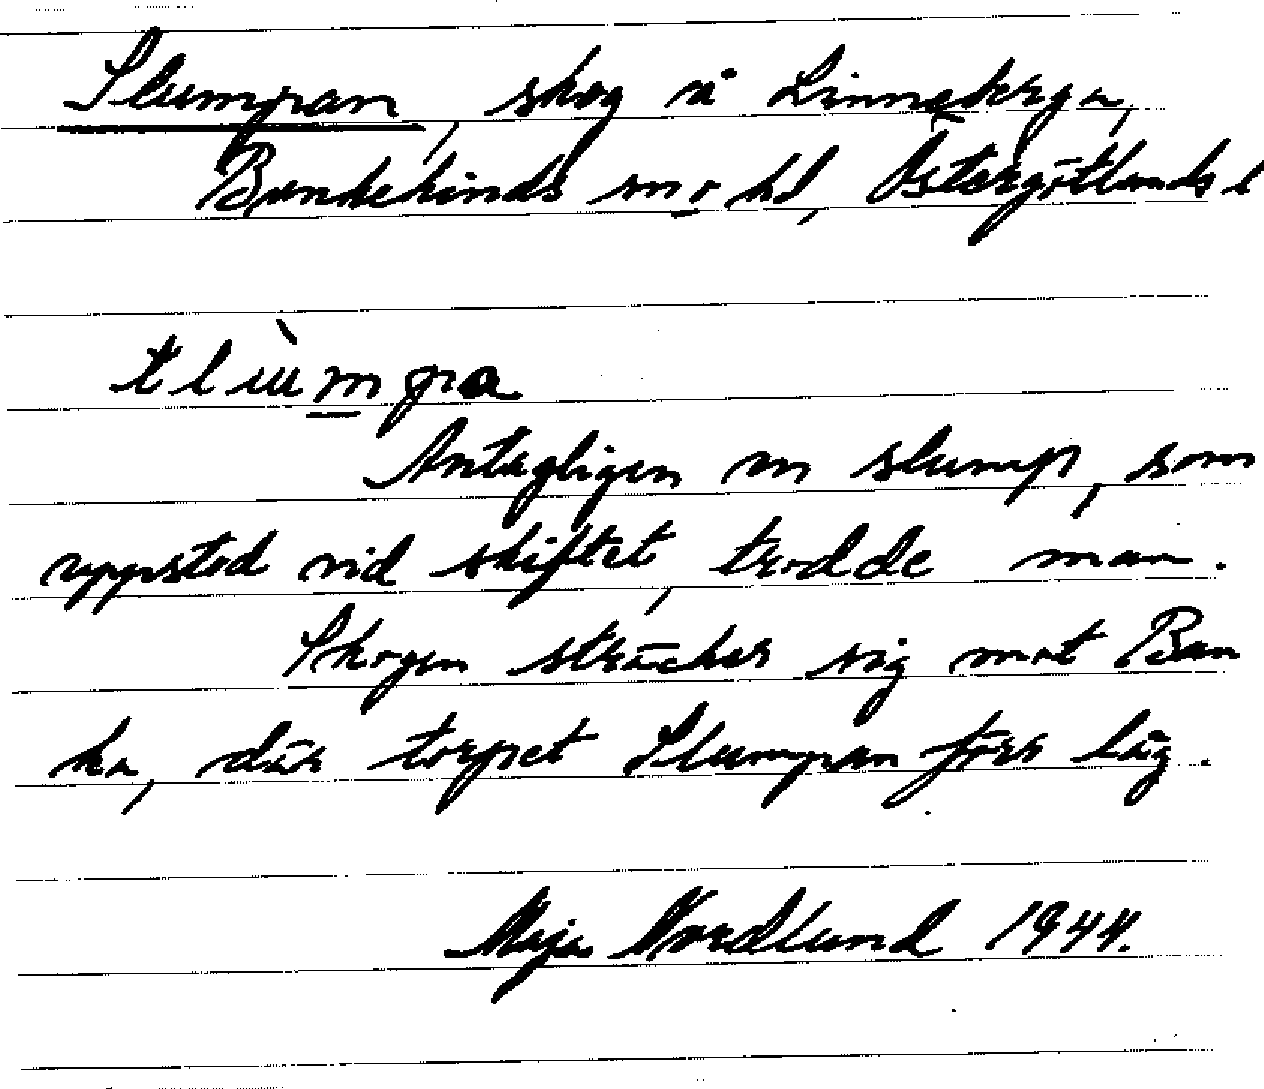 Slumpan, skog å Linneberga,
Bankekinds sn o hd, Östergötlands l
Antagligen en slump, som
uppstod vid skiftet, trodde man.
Skogen sträcker sig mot Ban
ka, där torpet Slumpan förr låg.
Maja Nordlund 1944.